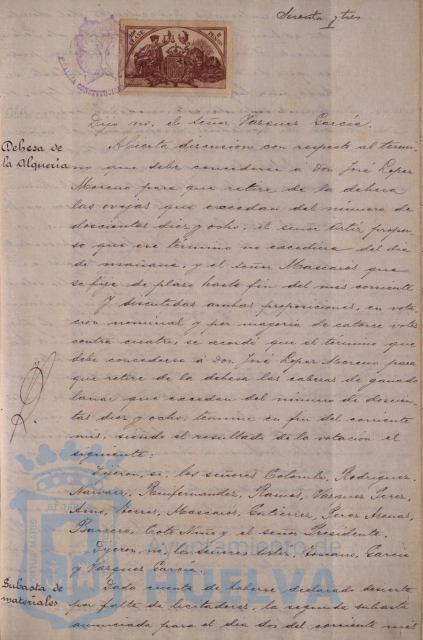 Sesenta y tres
Dijo no, el señor Vazquez García.
Dehesa de
la Alquería
Abierta discusion con respecto al térmi-
no que debe concederse a don José Lopez
Moreno para que retire de la dehesa
las ovejas que excedan del número de
doscientas diez y ocho; el señor Ortiz propu-
so que ese término no excediera del dia
de mañana, y el señor Mascarós que
se fije de plazo hasta fin del mes corriente
Y discutidas ambas proposiciones, en vota-
ción nominal y por mayoría de catorce votos
contra cuatro, se acordó que el término que
debe concederse á don José Lopez Moreno para
que retire de la dehesa las cabezas de ganado
lanar que excedan del número de doscien-
tas diez y ocho, termine en fin del corriente
mes, siendo el resultado de la votación el
siguiente:
Dijeron, si, los señores Colombo, Rodriguez,
Narvaez, Ramos, Vazquez Perez,
Torres, Mascarós, Gutiérrez, Perez
Barrero, Coto Nuño y el señor Presidente.
Dijeron, no, los señores García
y Vazquez García.
Subasta de
materiales
Dada cuenta de haberse declarado desierta
por falta de licitadores, la segunda subasta
anunciada para el dia dos del corriente mes
Ayuntamiento de
HUELVA